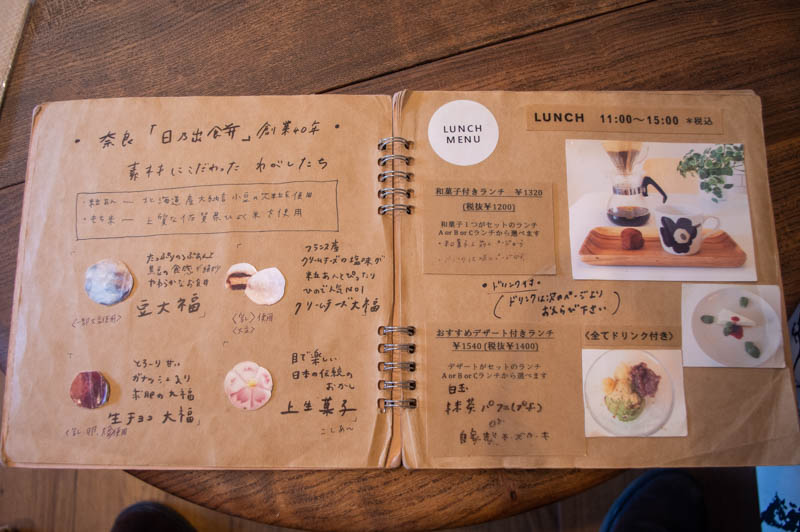 ・奈良「日乃出餅」創業40年・
素材にこだわった わがしたち
・粒あん ― 北海道産大納言小豆の 使用
・もち米 ― 上質な佐賀県ひよく米を使用
たっぷりのつぶあんと
やわらかなお餅
豆大福
フランス産
クリームチーズの塩味が
粒あんとぴったり
ひので人気NO1
クリームチーズ大福
とろーり甘い
ガナッシュ入り
生チョコ大福
目で楽しい
日本の伝統の
おかし
上生菓子
こしあん
LUNCH
MENU
LUNCH 11:00～15:00 ＊税込
和菓子付きランチ ￥1320
(税抜￥1200)
和菓子１つがセットのランチ
A or B or Cランチから選べます
・ドリンク付き・
(ドリンクは次のページより
お選び下さい)
おすすめデザート付きランチ
￥1540 (税抜￥1400)
デザートがセットのランチ
A or B or Cランチから選べます
白玉
抹茶パフェ
or
自家製チーズケーキ
〈全てドリンク付き〉